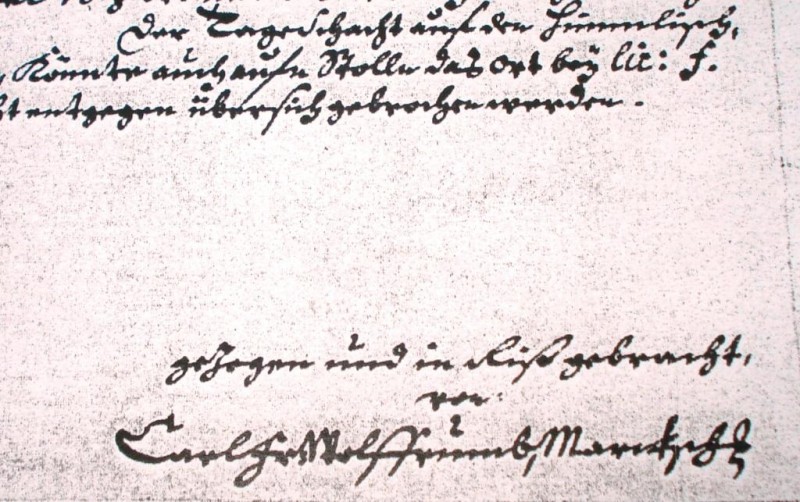 Der Tageschacht auf den Himmlisch,
Könnte auch aufn Stolln das ort beÿ lit: f.
entgegen übersich gebrochen werden.
gezogen und in Riß gebracht,
von:
Carl Fr Wolffrumb, Marcksch